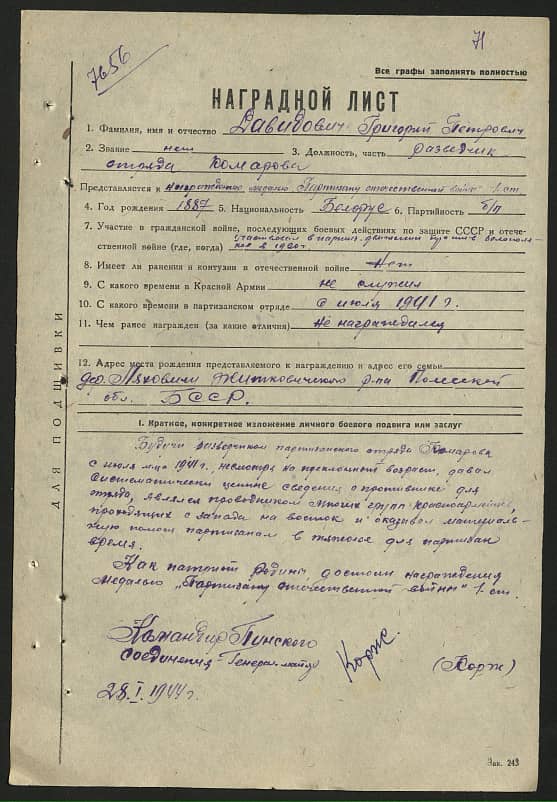 71
7656
Все графы заполнять полностью
НАГРАДНОЙ ЛИСТ
1. Фамилия, имя и отчество Давидович Григорий Петрович
2. Звание нет 3. Должность, часть разведчик
отряда Комарова
Представляется к награждению медалью "Партизану отечественной войны" 1 ст.
4. Год рождения 1887 5. Национальность Белорус 6. Партийность б/п
7. Участие в гражданской войне, последующих боевых действиях по защите СССР и отече-
ственной войне (где, когда) участвовал в партиз. движении против
в 1920 г.
8. Имеет ли ранения и контузии в отечественной войне Нет
9. С какого времени в Красной Армии не служил
10. С какого времени в партизанском отряде с июля 1941 г.
11. Чем ранее награжден (за какие отличия) Не награждался
12. Адрес места рождения представляемого к награждению и адрес его семьи
дер. Ляховичи Житковичского р-на Полесской
обл. БССР.
I. Краткое, конкретное изложение личного боевого подвига или заслуг
Будучи разведчиком партизанского отряда Комарова
с июля м-ца 1941 г., несмотря на преклонный возраст, давал
систематически ценные сведения о противнике для
отряда, являлся проводником многих групп красноармейцев,
проходящих с запада на восток и оказывал материаль-
ную помощь партизанам в тяжелое для партизан
время.
Как патриот Родины достоин награждения
медалью "Партизану отечественной войны" 1 ст.
Командир Пинского
соединения - Генерал-майор
Корж
(Корж)
28.I.1944 г.
ДЛЯ ПОДШИВКИ
Зак. 243